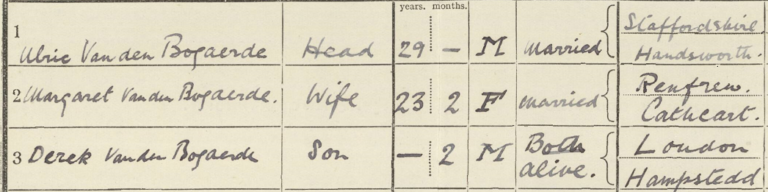 years. months.
1 Ulric Van den Bogaerde Head 29 — M Married Staffordshire. Handsworth.
2 Margaret Van den Bogaerde. Wife 23 2 F Married Renfrew. Cathcart.
3 Derek Van den Bogaerde Son — 2 M Both alive. London Hampstedd